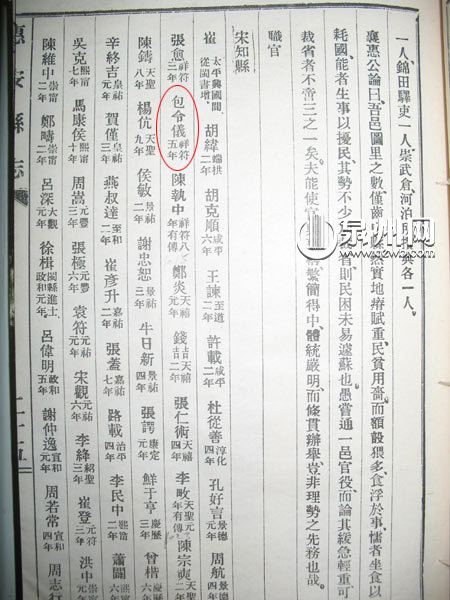 一人錦田驛吏一人崇武倉河泊各一人。
襄惠公論曰吾邑圖里之數僅兩然實地瘠賦重民貧用嗇而額設猥多食浮於事惰者坐食以
耗國能者生事以擾民其勢不少者則民困未易遽蘇也愚嘗通一邑官役而論其緩急輕重可
裁省者不啻三之一矣夫能使官繁簡得中體統嚴明而條貫辦舉豈非理勢之先務也哉
職官
宋知縣
崔 太平興國間從閩書增 胡緯端拱二年 胡克順咸平六年 王諫至道二年 許載咸平二年 杜從善淳化四年 孔好言景德元年 周航景德四年
張愈祥符三年 包令儀祥符五年 陳執中祥符八年有傳 鄭炎天禧元年 錢喆天禧二年 張仁術天禧四年 李畋天聖元年有傳 陳宗奭天聖二年
陳鑄天聖八年 楊伉天聖九年 侯敏景祐二年 謝忠恕景祐三年 牛日新景祐四年 張諤康定二年 鮮于亨慶歷三年 曾楷慶歷六年
辛終吉皇祐元年 賀僅皇祐三年 燕叔達至和二年 崔彥升嘉祐二年 張蓋嘉祐七年 路載治平四年 李民中熙甯二年 蕭闢熙甯六年
吳克熙甯七年 馬康侯熙甯十年 周嵩元豐三年 張極元豐六年 袁符元祐元年 宋觀元祐六年 李絳紹聖三年 崔登元符三年 洪中崇甯元年
陳維中崇甯二年 鄭疇崇甯二年 呂深大觀元年 徐楫閩縣進士政和元年 呂偉明政和五年 謝仲逸宣和二年 周若常宣和四年 周志行
惠安縣志
二十五
泉州網